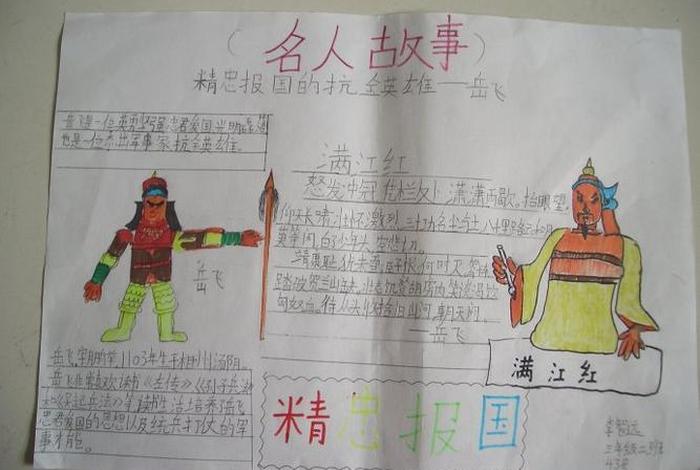 （名人故事）
精忠报国的抗全英雄——岳飞
岳飞是一位英勇坚强忠君爱国
也是一位杰出军事家、抗全英雄。
满江红
怒发冲冠，凭栏处，潇潇雨歇。抬眼望，
仰天长啸，壮怀激烈。三十功名尘与土，八千里路云和月。
莫等闲，白了少年头，空悲切。
靖康耻，犹未雪，臣子恨，何时灭。驾长车
踏破贺兰山缺。壮志饥餐胡虏肉，笑谈渴饮
匈奴血。待从头，收拾旧山河，朝天阙。
——岳飞
岳飞
岳飞，1103年生于相州汤阴。
岳飞非常喜欢读书《左传》《孙子兵法》
等读书生活培养了岳飞
忠君爱国的思想以及统兵打仗的军
事才能。
满江红
精忠报国
三年级二班